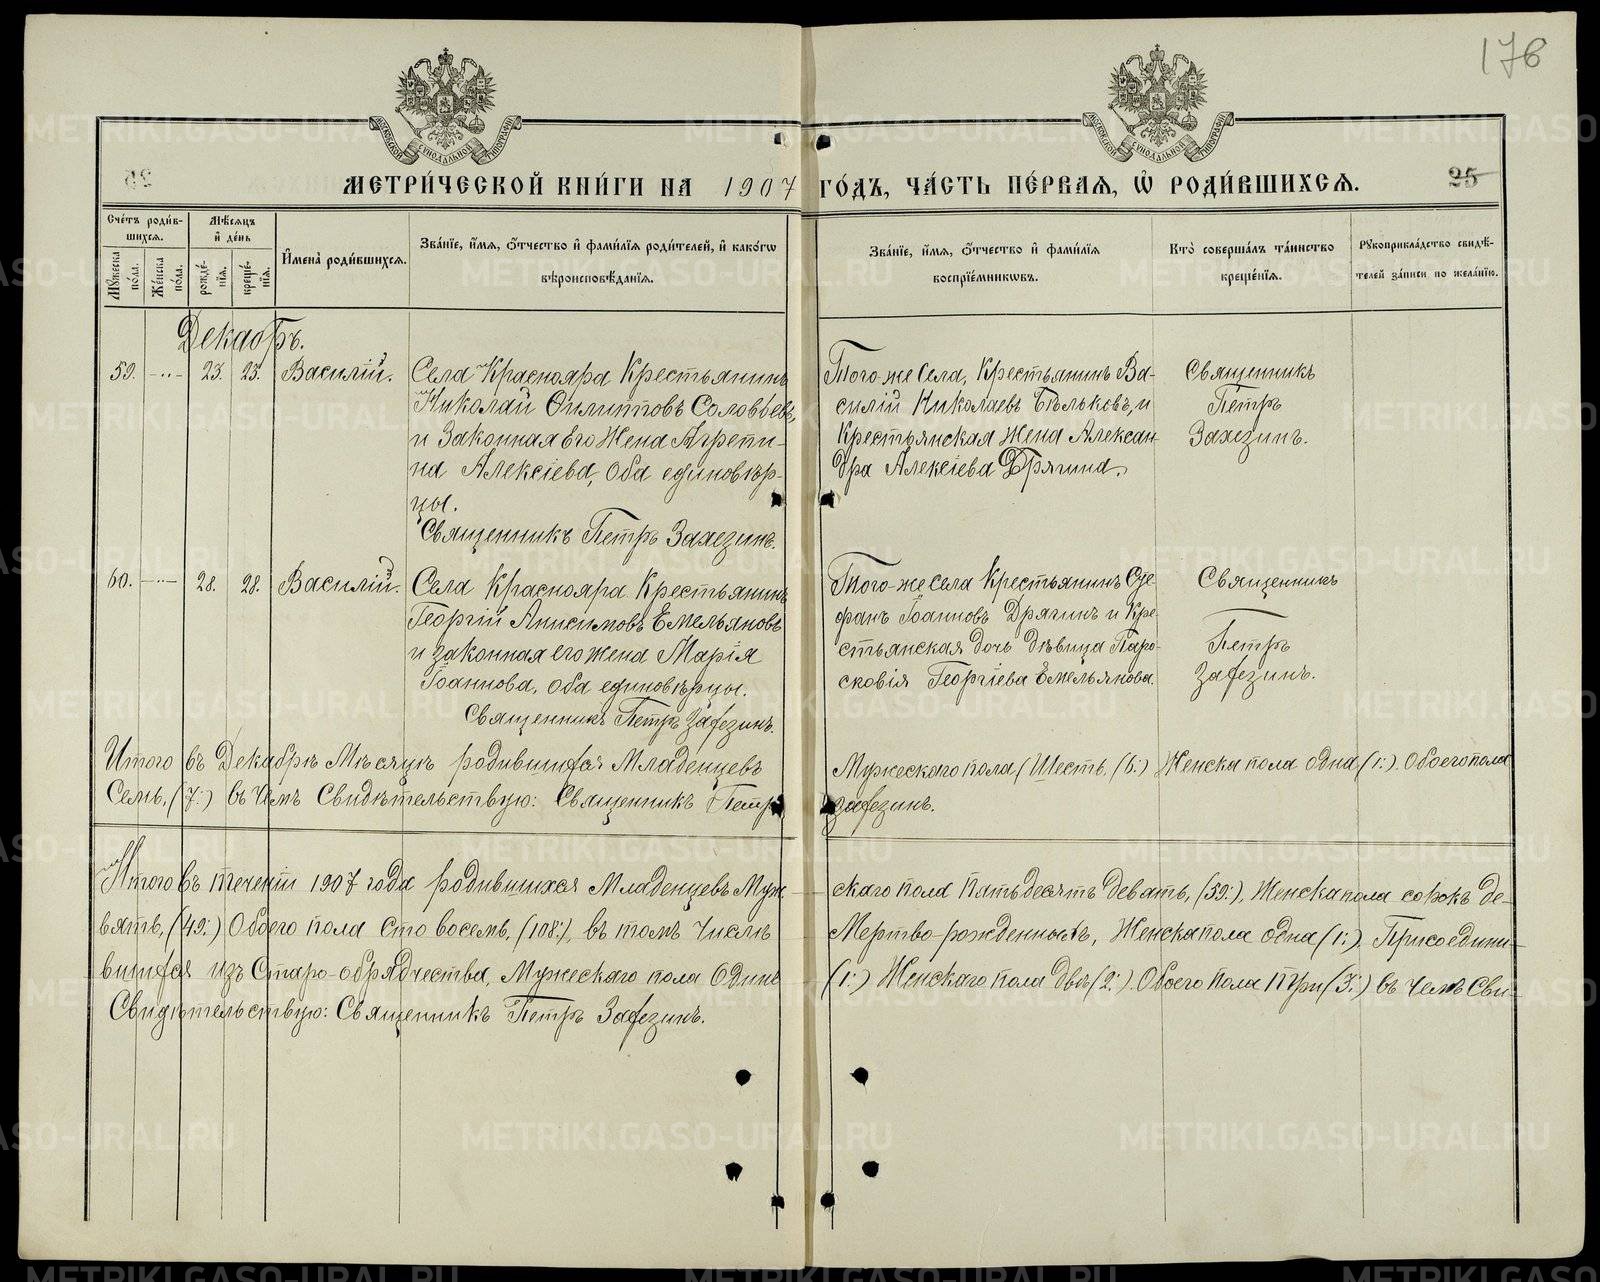 176
МЕТРИ́ЧЕСКОЙ КНИ́ГИ НА 1907 ГО́ДЪ, ЧА́СТЬ ПЕ́РВАЯ, Ѡ҆ РОДИ́ВШИХСЯ. 25
Сче́тъ роди́вшихся.
Мѣ́сяцъ и҆ де́нь
И҆мена̀ роди́вшихся.
Зва́нїе, и҆́мя, ѻ҆́тчество и҆ фами́лїя роди́телей, и҆ како́гѡ
вѣроисповѣ́данїя.
Зва́нїе, и҆́мя, ѻ҆́тчество и҆ фами́лїя
воспрїе́мникѡвъ.
Кто̀ соверша́лъ та́инство
креще́нїя.
Рꙋкоприкла́дство свидѣ́-
телей за́писи по жела́нїю.
Мꙋ́жеска по́ла.
Же́нска по́ла.
рожде́нїя.
креще́нїя.
Декабрь.
59. -..- 23. 25. Василій.
Села Краснояра Крестьянинъ
Николай Филипповъ Соловьевъ,
и Законная Его Жена Агрепи-
на Алексіева, Оба единовѣр-
цы.
Священникъ Петръ Захезинъ.
Того-же Села, Крестьянинъ Ва-
силій Николаевъ Бѣльковъ, и
Крестьянская Жена Алексан-
дра Алексіева Дрягина.
Священникъ
Петръ
Захезинъ.
60. -..- 28. 28. Василій.
Села Краснояра Крестьянинъ
Георгій Анисимовъ Емельяновъ
и законная его жена Марія
Іоаннова, оба единовѣрцы.
Священникъ Петръ Захезинъ.
Того-же Села Крестьянинъ Сте-
фанъ Іоанновъ Дрягинъ и Кре-
стьянская дочь дѣвица Паро-
сковія Георгіева Емельянова.
Священникъ
Петръ
Захезинъ.
Итого въ Декабрѣ Мѣсяцѣ родившихся Младенцевъ Мужескаго пола (Шесть, (6.) Женска пола одна (1.). Обоего пола
Семь, (7.) въ Чемъ Свидѣтельствую: Священникъ Петръ Захезинъ.
Итого въ теченіи 1907 года родившихся Младенцевъ Муже-скаго пола Пятьдесятъ девять, (59.), Женска пола сорокъ де-
вять, (49.) Обоего пола Сто восемь, (108.), въ томъ Числѣ Мертво-рожденныхъ, Женска пола одна (1.). Присоедини-
вшихся изъ Старо-обрядчества, Мужескаго пола Одинъ (1.) Женскаго пола двѣ (2.) Обоего пола Три (3.) въ чемъ Сви-
Свидѣтельствую: Священникъ Петръ Захезинъ.